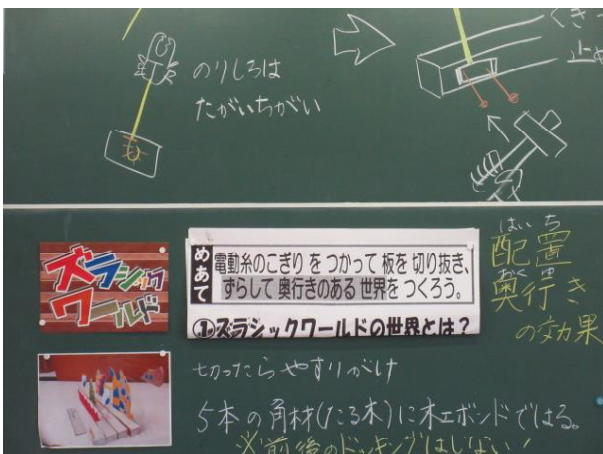 のりしろは
たがいちがい
くぎ
止め
ズラシック
ワールド
めあて
電動糸のこぎり を つかって 板を 切り抜き、
ずらして 奥行きのある 世界を つくろう。
①ズラシックワールドの世界とは?
はいち
配置
おくゆ
奥行き
の効果
切ったらやすりがけ
5本の角材(たる木)に木工ボンドではる。
※前後のドッキングはしない!